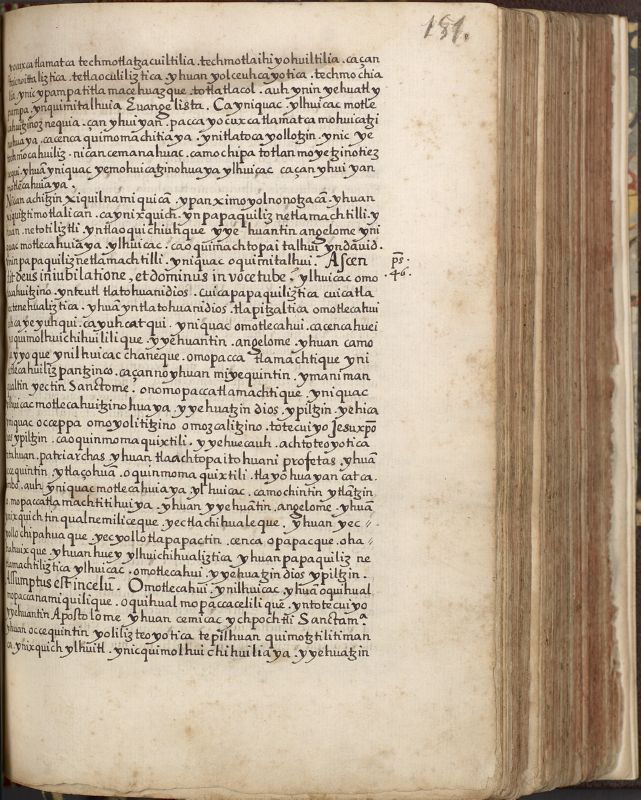 181.
yocuxcatlamatca techmotlatzacuiltilia . techmotlaihiyohuiltilia . caçan
tlaliztica . tetlaoculiliztica . yhuan yolceuhcayotica . techmochia
lia . ynic ypampa titlamacehuazque . totlatlacol . auh ynin yehuatl y
pampa . ynquimitalhuia Euangelista . Ca yniquac . ylhuicac motle
cahuitzinoz nequia . çan yhuiyan . pacca yocuxcatlamatca mohuicatzi
nohuaya . cacenca quimomachitiaya . ynitlatoca yollotzin . ynic ye
techmocahuiliz . nican cemanahuac . camochipa totlan moyetzinotiez
yhuan yniquac yemohuicatzinohuaya ylhuicac caçan yhui yan
motlecahuiaya .
Nican achitzin xiquilnamiquicã . ypan ximoyolnonotzacã . yhuan
xiquitzimotlalican . ca ynixquich . yn papaquiliz netlamachtilli . y
huan . netotiliztli . yntlaoquichiuhque yyehuantin angelome yni
quac motlecahuiaya ylhuicac . caoquimachtopaitalhui yndauid .
ynin papaquiliz netlamachtilli . yniquac oquimitalhui . Ascen
dit deus iniubilatione , et dominus in voce tube . ylhuicac omo
ps. 46.
tlecahuitzino . ynteutl tlatohuanidios . cuica papaquiliztica cuicatla
tenehualiztica . yhuã yntlatohuanidios . tlapitzaltica omotlecahui
auh ca yeyuhqui . ca yuhcatqui . yniquac omotlecahui . cacenca huei
quimolhuichihuililique . yyehuantin . angelome . yhuan camo
yyoque ynilhuicac chaneque . omopacca tlamachtique yni
motlecahuiliz pantzinco . caçan no yhuan miyequintin . ymaniman
qualtin yectin Sanctome . onomopaccatlamachtique . yniquac
ylhuicac motlecahuitzinohuaya . yyehuatzin dios ypiltzin . yehica
yniquac occeppa omoyolititzino omozcalitzino . totecuiyo Jesuxpõ
dios ypiltzin . caoquinmoma quixtili . yyehuecauh . achtoteoyotica
tatahuan . patriarchas yhuan tlaachtopaitohuani profetas . yhuã
occequintin . ytlaçohuã . oquinmoma quixtili . tlayohuayan catca .
limbo . auh yniquac motlecahuiaya ylhuicac . camochintin ytlãtzin
mopaccatlamachtitihuiya . yhuan yyehuãtin . angelome . yhuã
ynixquichtin qualnemiliceque . yectlachihualeque . yhuan yec
yollochipahuaque yecyollotlapapactin . cenca opapacque . oha
huixque . yhuan huey ylhuichihualiztica yhuan papaquiliz ne
tlamachtiliztica ylhuicac . omotlecahui . yyehuatzin dios ypiltzin .
Assumptus est incelũ . Omotlecahui . ynilhuicac yhuã oquihual
mopaccanamiquilique . oquihual mopaccacelilique . yntotecuiyo
yyehuantin Apostolome yhuan cemicac ychpochtli Sanctamª
yhuan occequintin yoliliz teoyotica tepilhuan quimotztilitiman
ca . ynixquich ylhuitl . ynicquimolhuichihuiliaya . yyehuatzin